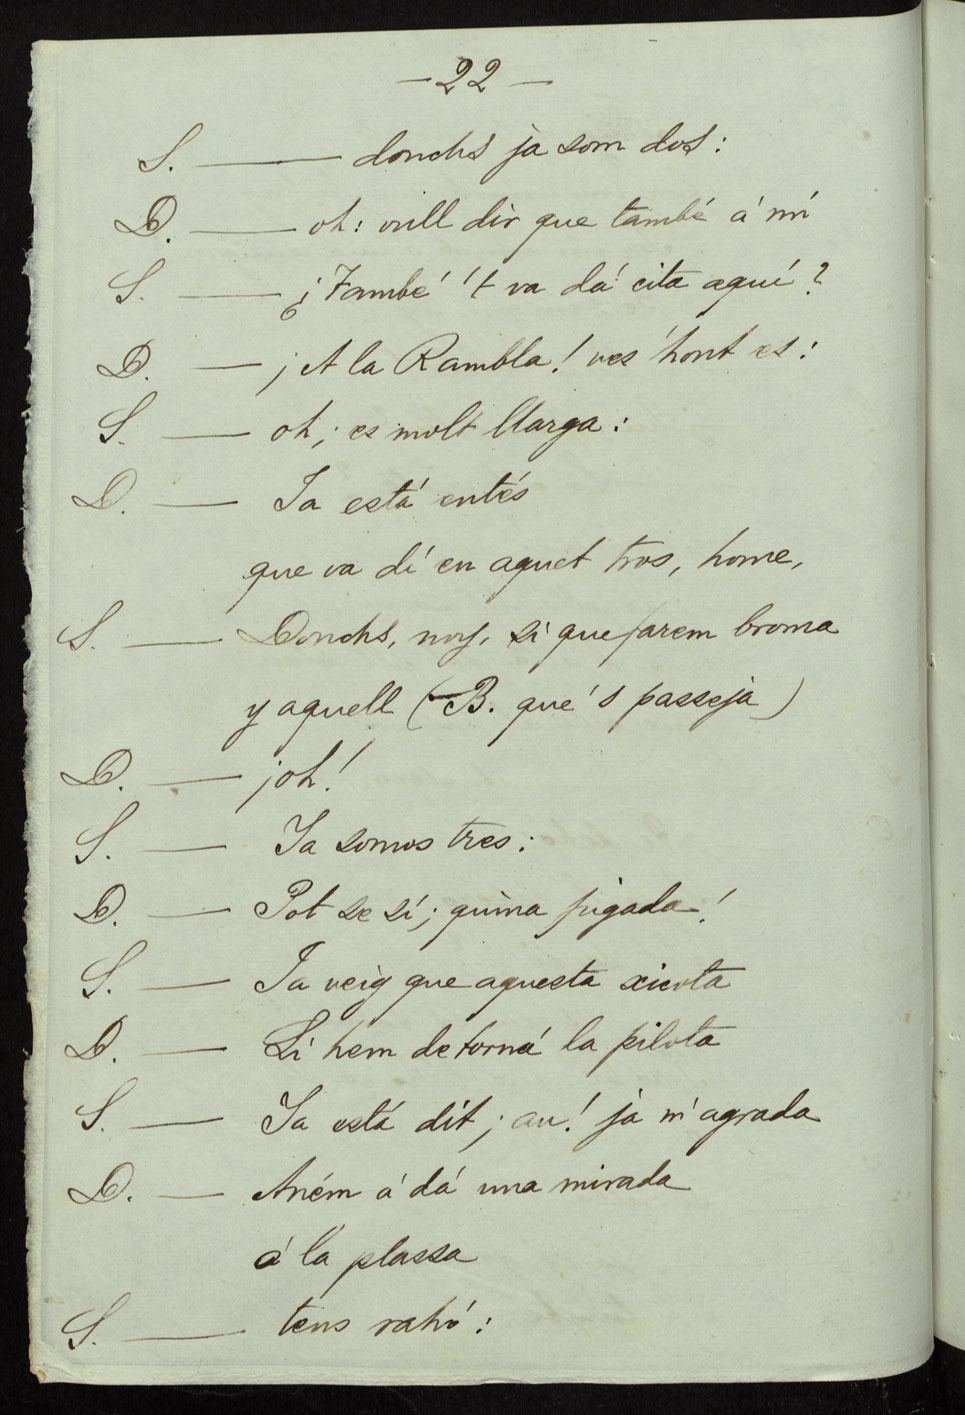 — 22 —
S. — donchs ja som dos:
D. — oh: vull dir que també á mí
S. — ¿També 't va dá cita aquí?
D. — ¡A la Rambla! ves 'hont es:
S. — oh; es molt llarga:
D. — Ja está entés
que va dí en aquet tros, home,
S. — Donchs, noy, si que farem broma
y aquell (B. que 's passeja)
D. — ¡oh!
S. — Ja somos tres:
D. — Pot se sí; quina jugada!
S. — Ja veig que aquesta xicota
D. — Li hem de torná la pilota
S. — Ja está dit; au! ja m'agrada
D. — Aném á dá una mirada
á la plassa
S. — tens rahó: